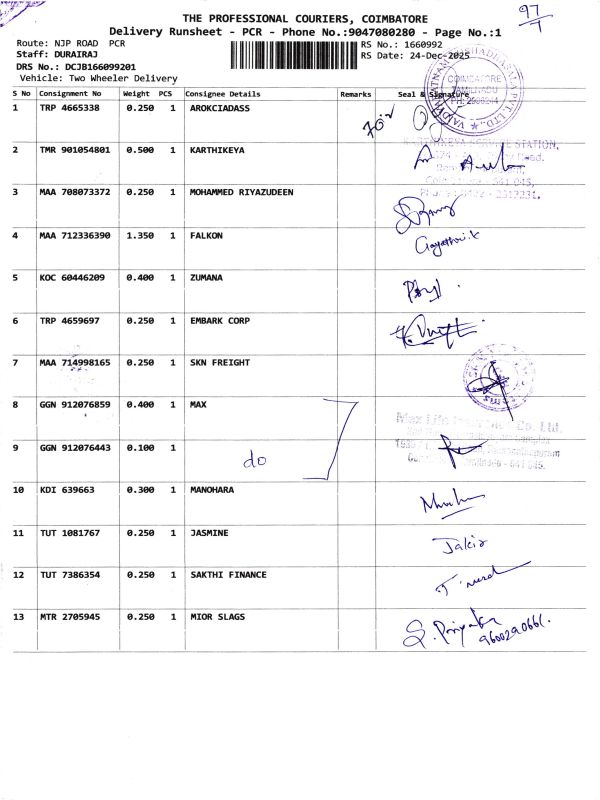 97
7
THE PROFESSIONAL COURIERS, COIMBATORE
Delivery Runsheet - PCR - Phone No.:9047080280 - Page No.:1
Route: NJP ROAD PCR
RS No.: 1660992
Staff: DURAIRAJ
RS Date: 24-Dec-2025
DRS No.: DCJB166099201
Vehicle: Two Wheeler Delivery
S No Consignment No Weight PCS Consignee Details Remarks Seal & Signature
1 TRP 4665338 0.250 1 AROKCIADASS
COIMBATORE
TAMILNADU
2 TMR 901054801 0.500 1 KARTHIKEYA
SERVICE STATION,
3 MAA 708073372 0.250 1 MOHAMMED RIYAZUDEEN
4 MAA 712336390 1.350 1 FALKON
Gayathri.k
5 KOC 60446209 0.400 1 ZUMANA
6 TRP 4659697 0.250 1 EMBARK CORP
7 MAA 714998165 0.250 1 SKN FREIGHT
8 GGN 912076859 0.400 1 MAX
Max Life Co. Ltd.
9 GGN 912076443 0.100 1 do
10 KDI 639663 0.300 1 MANOHARA
11 TUT 1081767 0.250 1 JASMINE
Jakir
12 TUT 7386354 0.250 1 SAKTHI FINANCE
13 MTR 2705945 0.250 1 MIOR SLAGS
S. Priyanka
9600290661.